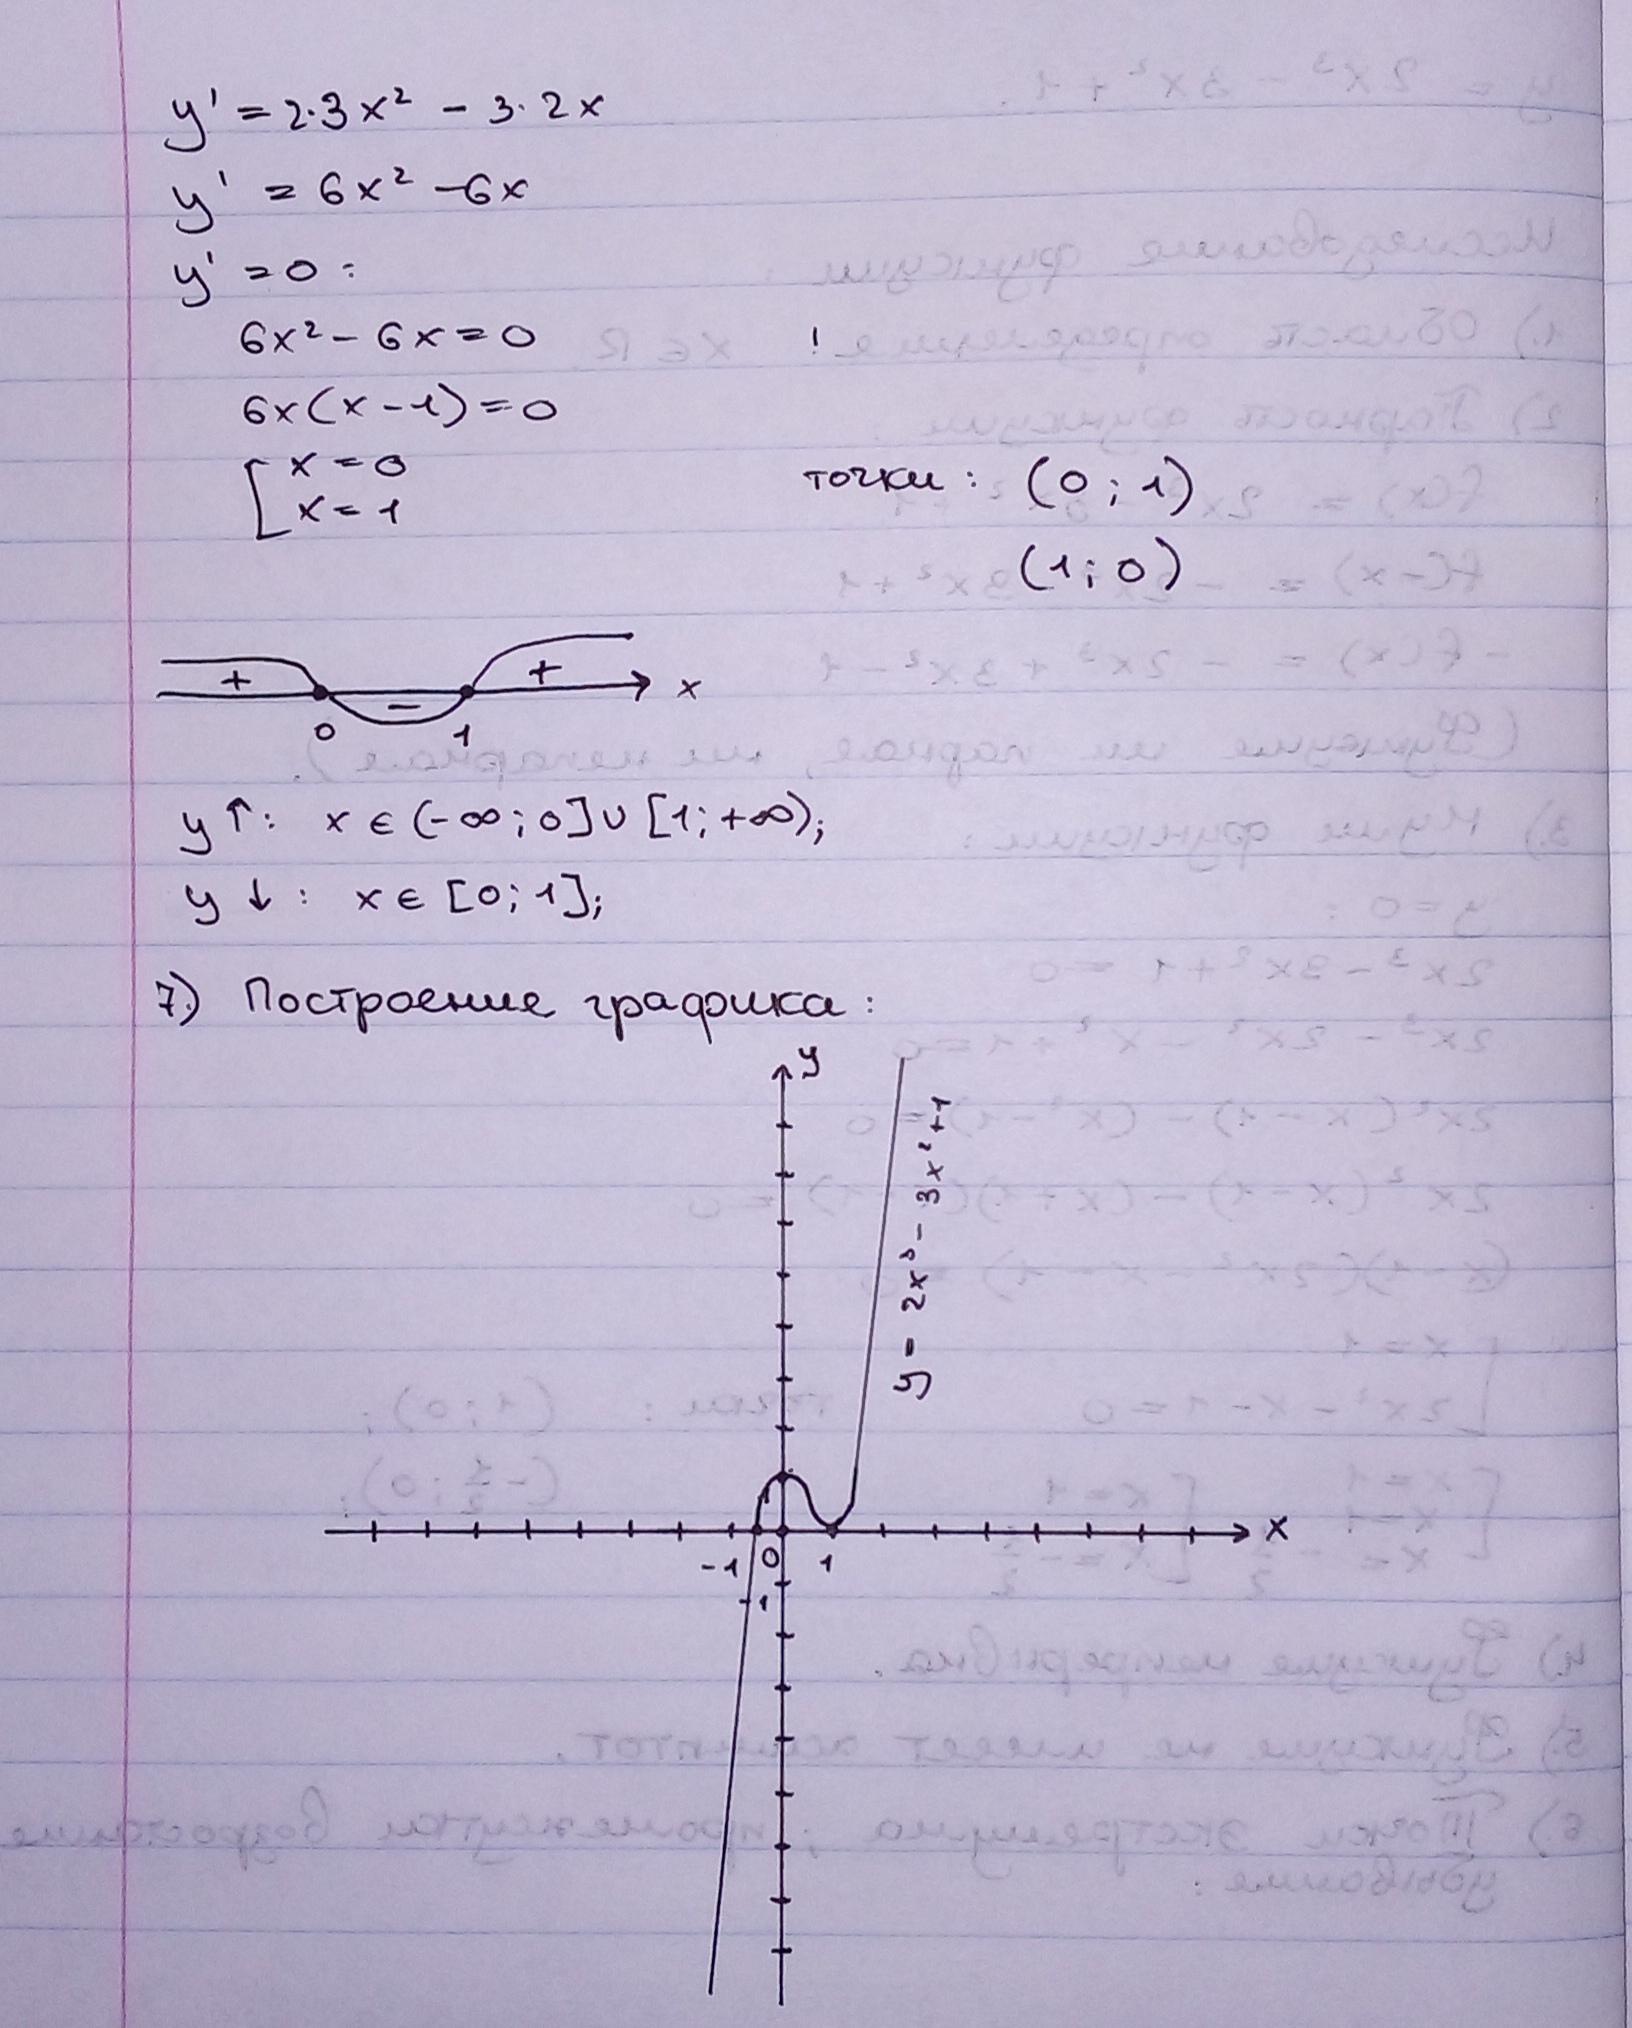 y' = 2·3x² - 3·2x
y' = 6x² - 6x
y' = 0 :
6x² - 6x = 0
6x(x - 1) = 0
x = 0
x = 1
точки : (0 ; 1)
(1 ; 0)
+ - + x
0 1
y ↑ : x ∈ (-∞ ; 0] ∪ [1 ; +∞) ;
y ↓ : x ∈ [0 ; 1] ;
7.) Построение графика :
y
y = 2x³ - 3x² + 1
1
-1 0 1 x
-1